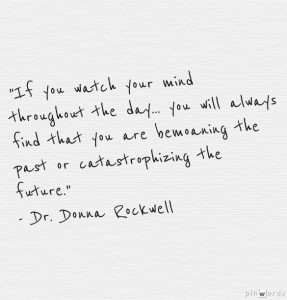 "If you watch your mind
throughout the day... you will always
find that you are bemoaning the
past or catastrophizing the
future."
- Dr. Donna Rockwell
pinwords